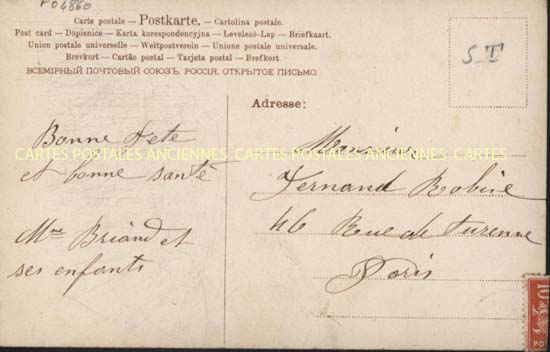 PO4860
Carte postale — Postkarte. — Cartolina postale.
Post card — Dopisnice — Karta korespondencyjna — Levelező-Lap — Brietkaart.
Union postale universelle — Weltpostverein — Unione postale universale.
Brevkort — Cartão postal — Tarjeta postal — Brefkort
ВСЕМІРНЫЙ ПОЧТОВЫЙ СОЮЗЪ. РОССІЯ. ОТКРЫТОЕ ПИСЬМО.
S T
Adresse:
Bonne fete
et bonne santé
Mme Briand et
ses enfants
Monsieur
Fernand Robine
46 Rue de Turenne
Paris
CARTES POSTALES ANCIENNES CARTES POSTALES ANCIENNES CARTES POSTALES ANCIENNES
10
PO